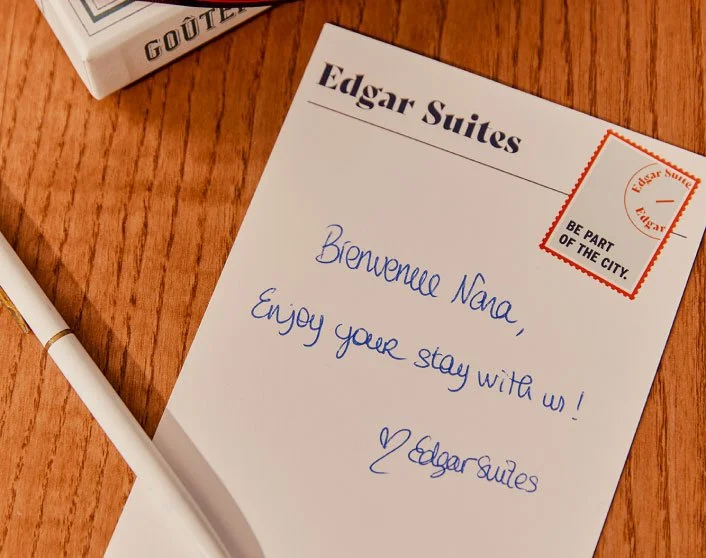 GOÛTE
Edgar Suites
Edgar Suite
Edgar
BE PART
OF THE CITY.
Bienvenue Nana,
Enjoy your stay with us!
♡ Edgar Suites